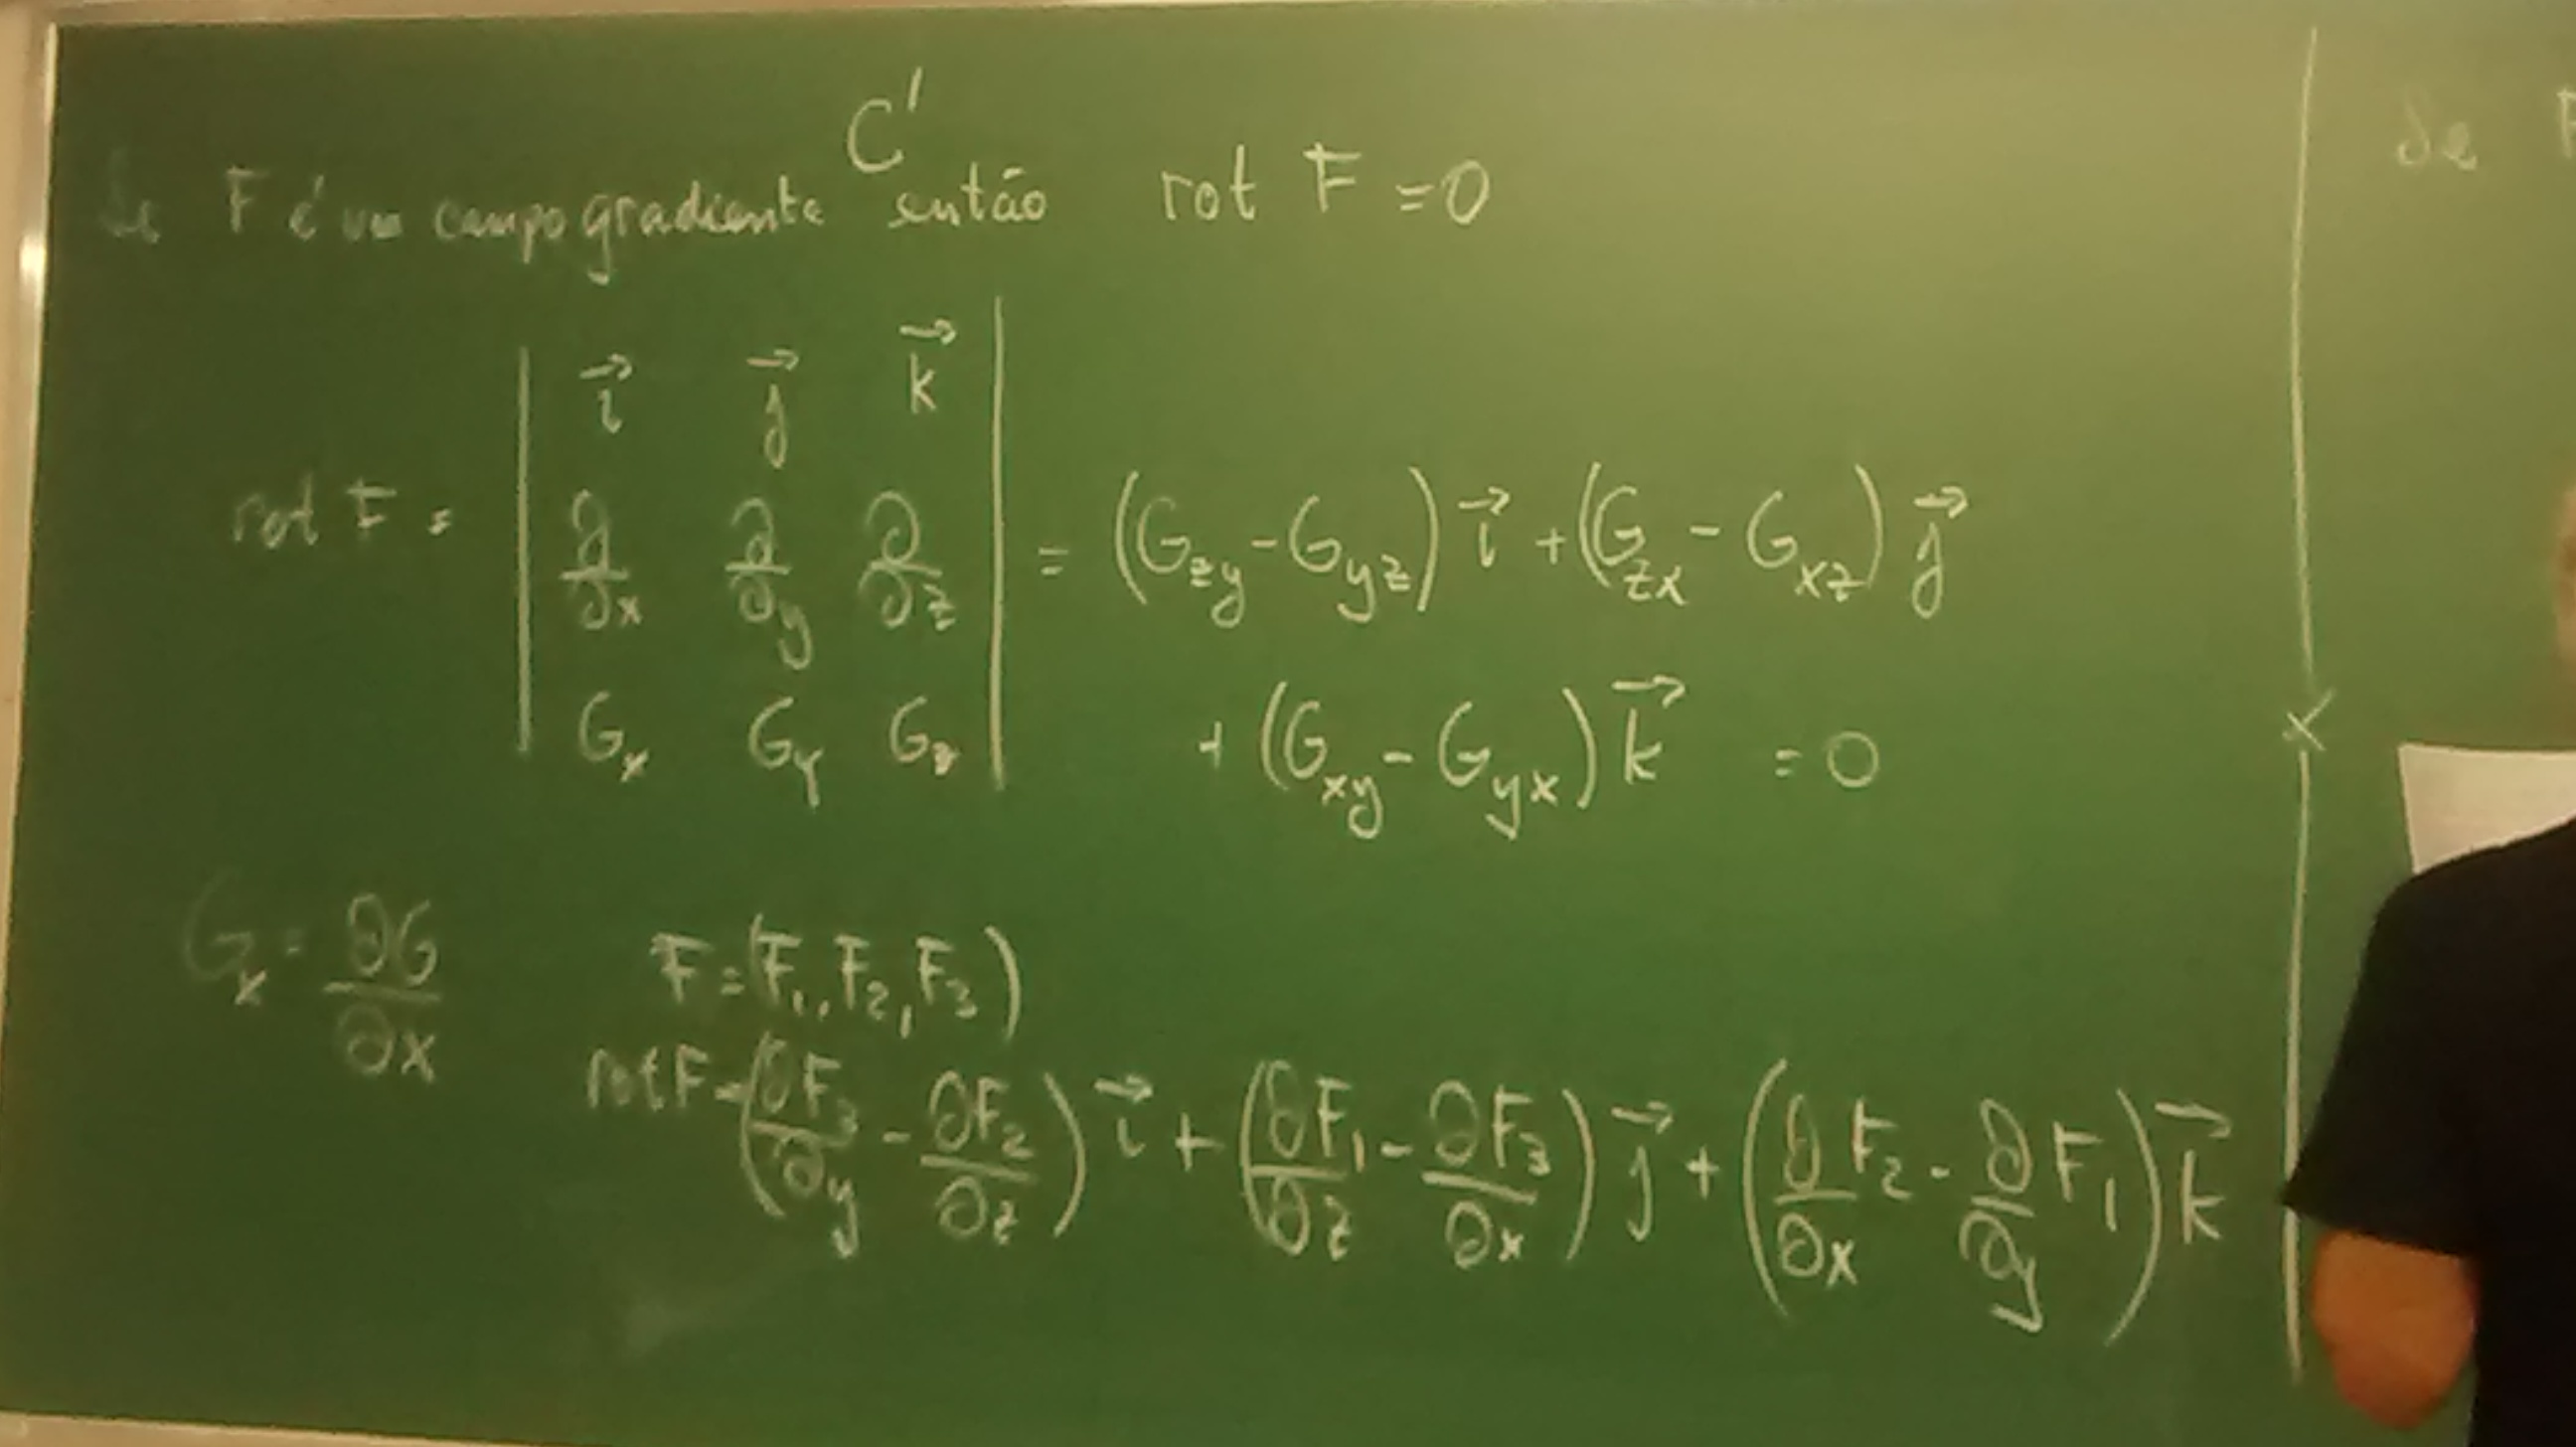 C¹
Se F é um campo gradiente então rot F = 0
rot F = | i⃗ j⃗ k⃗ |
| ∂/∂x ∂/∂y ∂/∂z | = (G_zy - G_yz) i⃗ + (G_zx - G_xz) j⃗
| G_x G_y G_z | + (G_xy - G_yx) k⃗ = 0
G_x = ∂G/∂x
F = (F₁, F₂, F₃)
rot F = (∂F₃/∂y - ∂F₂/∂z) i⃗ + (∂F₁/∂z - ∂F₃/∂x) j⃗ + (∂/∂x F₂ - ∂/∂y F₁) k⃗
Se F